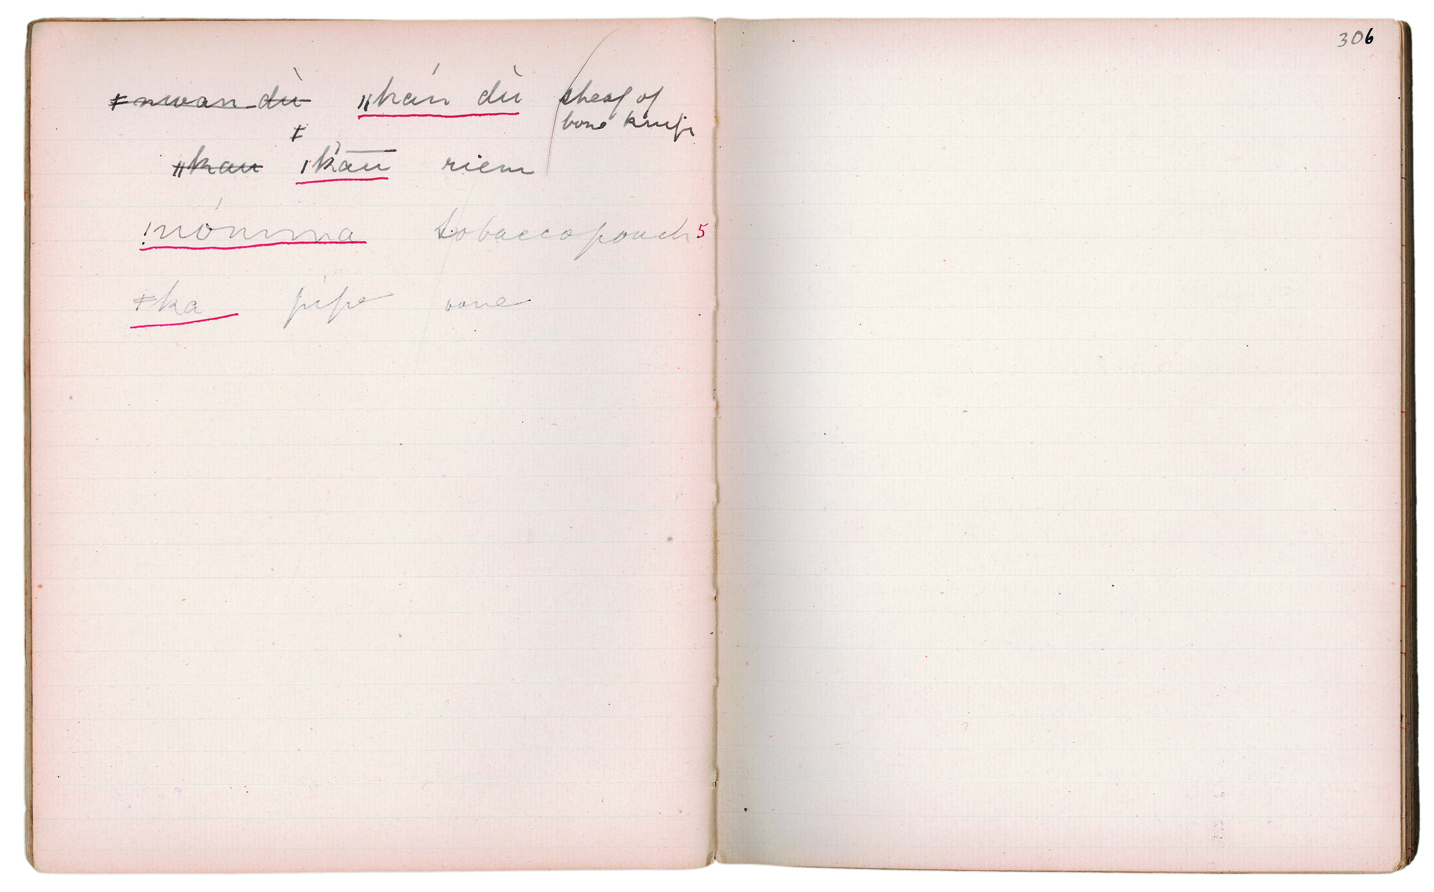 306
ǂnwan dù ǁkán dù sheaf of
bone knife
ǂ
ǁkau ǀk̄au riem
!nómma tobaccopouch 5
ǂka pipe bone